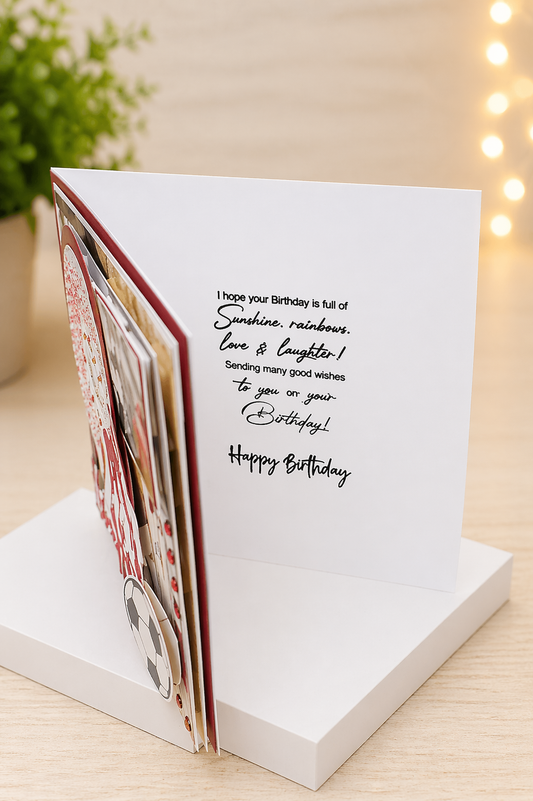 I hope your Birthday is full of
Sunshine, rainbows,
love & laughter!
Sending many good wishes
to you on your
Birthday!
Happy Birthday